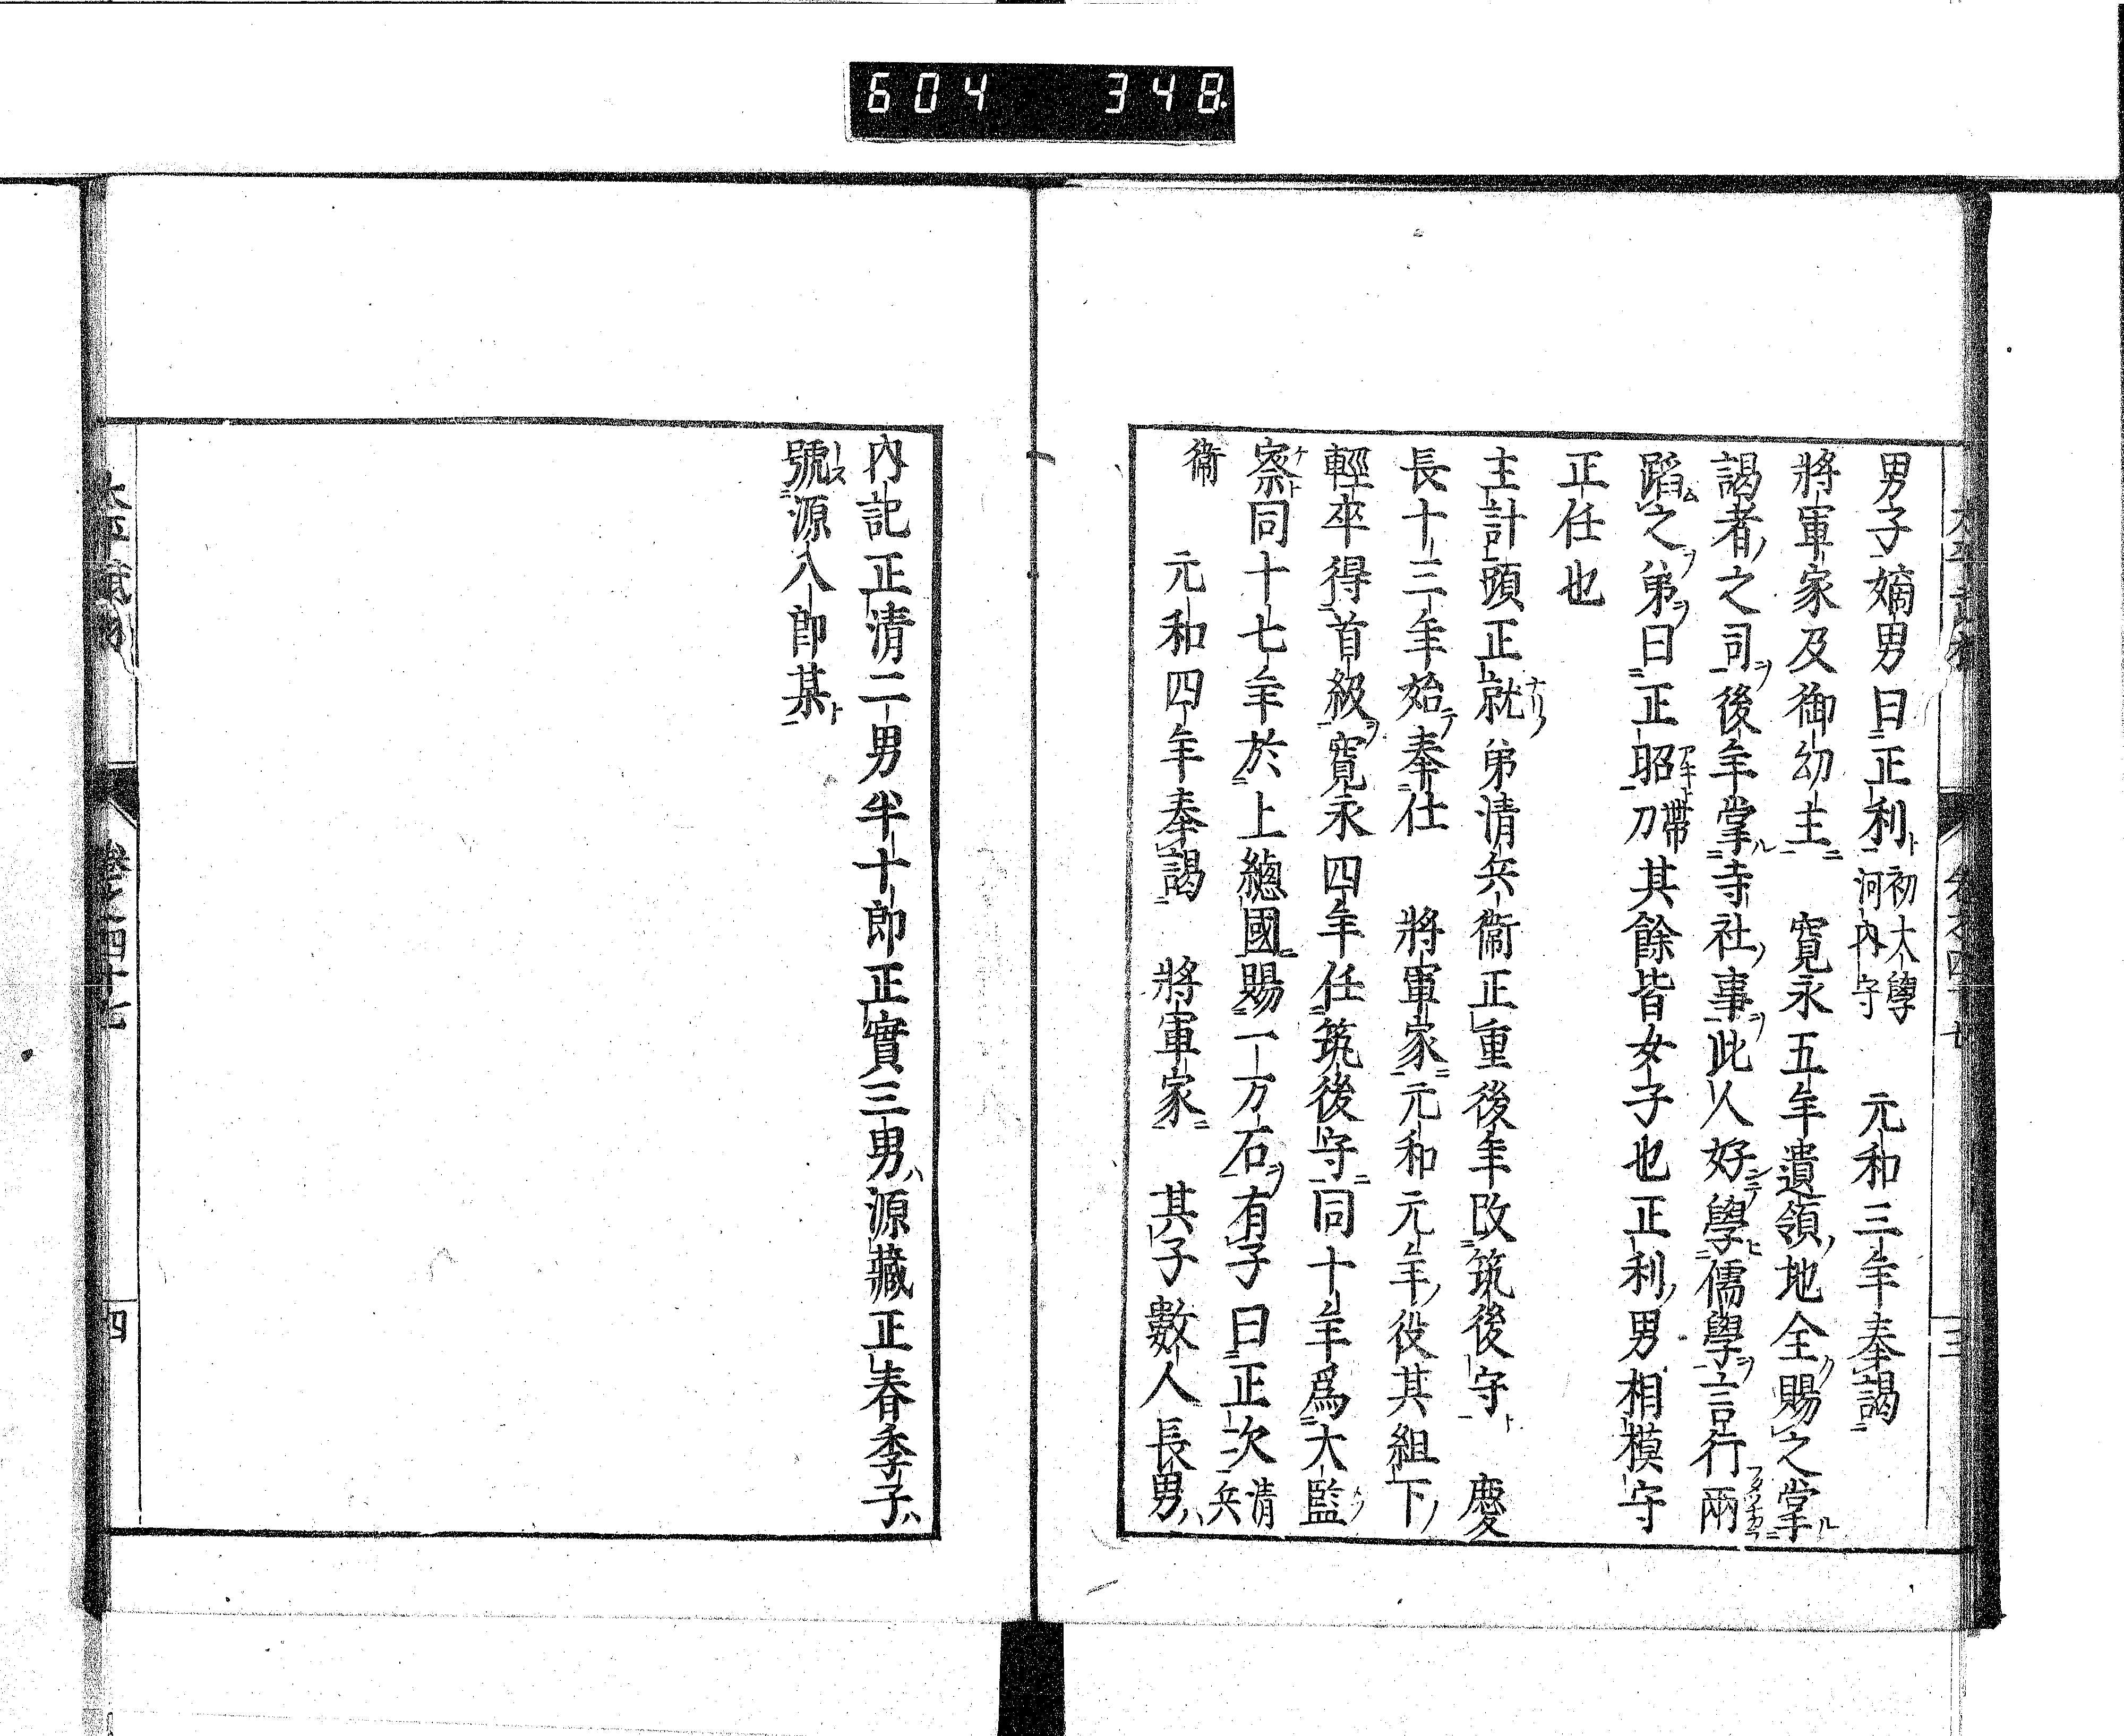 604 348
男子嫡男曰正利初大學河内守 元和三年奉謁
將軍家及御幼主 寬永五年遺領地全賜之掌
謁者之司後年掌寺社事此人好學儒學言行兩
蹈之弟曰正昭帶刀其餘皆女子也正利男相模守
正任也
主計頭正就弟清兵衞正重後年改筑後守 慶
長十三年始奉仕 將軍家元和元年役其組下
輕卒得首級寬永四年任筑後守同十年爲大監
察同十七年於上總國賜一万石有子曰正次清兵
衞 元和四年奉謁 將軍家 其子數人長男
三
内記正清二男半十郎正實三男源藏正春季子
號源八郎某
卷之四十七
四